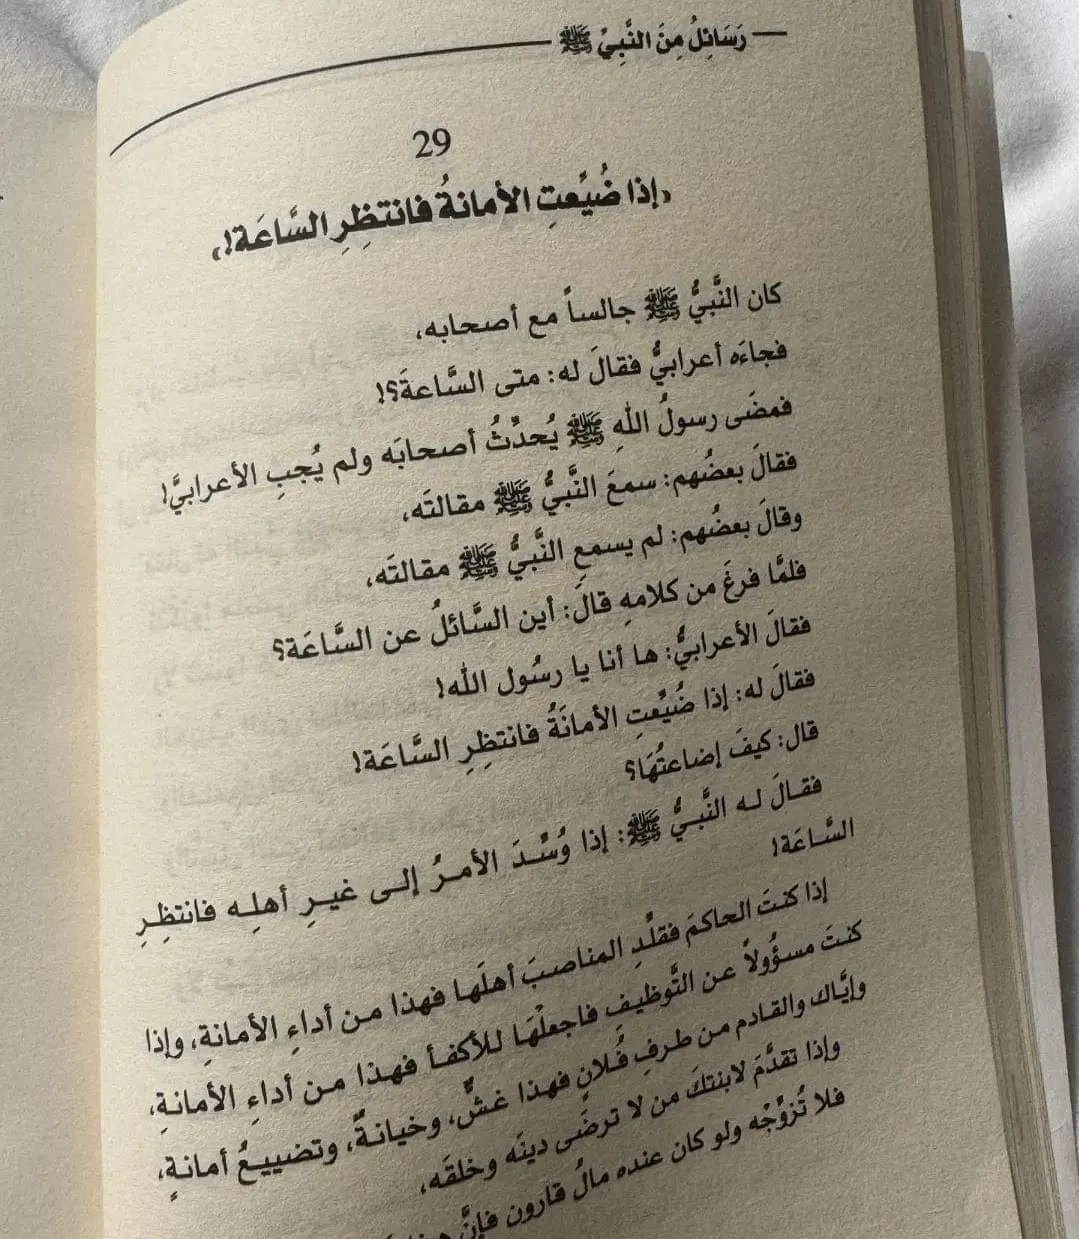 رَسَائِلُ مِنَ النَّبِيِّ ﷺ
29
«إذا ضُيِّعتِ الأمانةُ فانتظِرِ السَّاعَة!»
كان النَّبيُّ ﷺ جالساً مع أصحابه،
فجاءَه أعرابيٌّ فقالَ له: متى السَّاعةَ؟!
فمضَى رسولُ اللهِ ﷺ يُحدِّثُ أصحابَه ولم يُجبِ الأعرابيَّ!
فقالَ بعضُهم: سمعَ النَّبيُّ ﷺ مقالتَه،
وقالَ بعضُهم: لم يسمعِ النَّبيُّ ﷺ مقالتَه،
فلمَّا فرغَ من كلامهِ قالَ: أين السَّائلُ عن السَّاعَة؟
فقالَ الأعرابيُّ: ها أنا يا رسُول الله!
فقالَ له: إذا ضُيِّعتِ الأمانَةُ فانتظِرِ السَّاعَة!
قال: كيفَ إضاعتُهَا؟
فقالَ له النَّبيُّ ﷺ: إذا وُسِّدَ الأمرُ إلى غيرِ أهلِه فانتظِرِ
السَّاعَة!
إذا كنتَ الحاكمَ فقلِّدِ المناصبَ أهلَها فهذا من أداءِ الأمانةِ، وإذا
كنتَ مسؤُولاً عن التَّوظيفِ فاجعلْهَا للأكفأ فهذا من أداءِ الأمانةِ،
وإيَّاك والقادم من طرفِ فُلانٍ فهذا غشٌّ، وخيانةٌ، وتضييعُ أمانةٍ،
وإذا تقدَّمَ لابنتكَ من لا ترضَى دينَه وخلقَه،
فلا تُزوِّجْه ولو كان عنده مالُ قارون فإنَّ